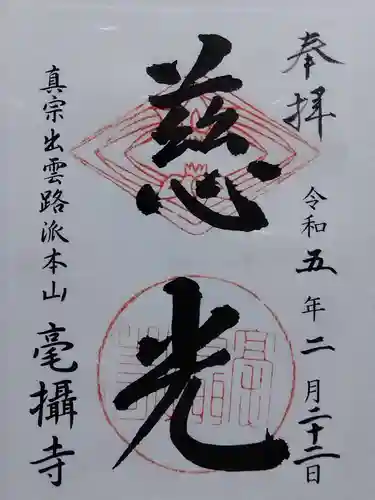 奉拝
令和五年二月二十二日
慈光
真宗出雲路派本山
毫攝寺